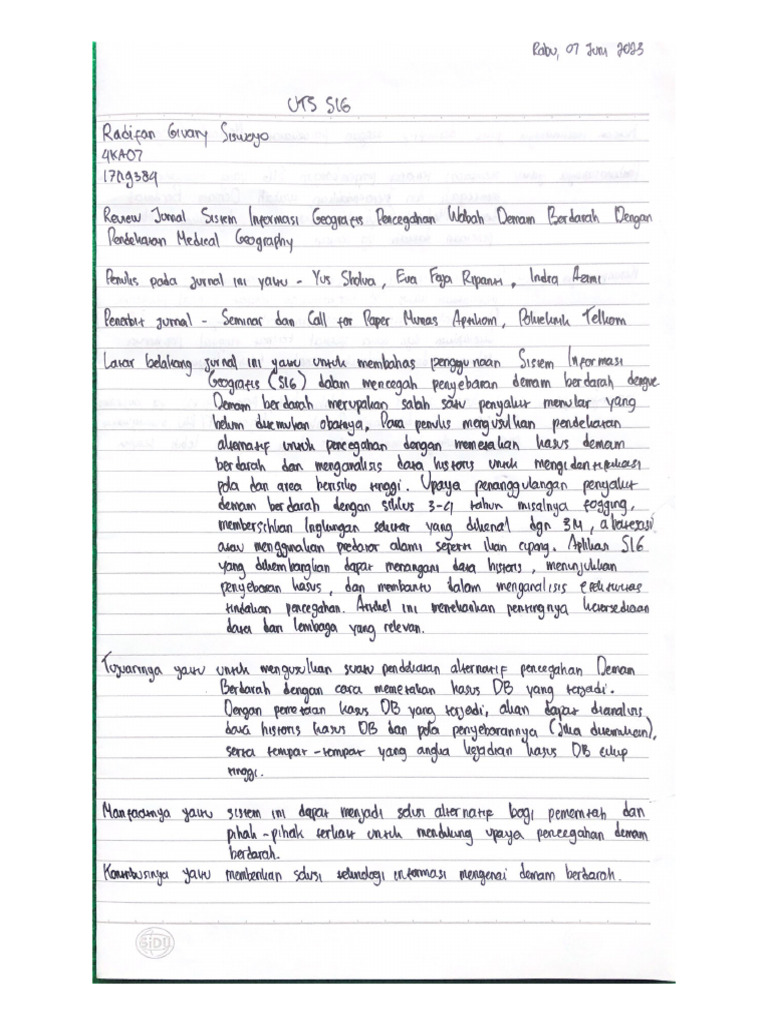 Rabu, 07 Juni 2023
UTS SIG
Radifan Givary Siswoyo
4KA07
17119389
Review Jurnal Sistem Informasi Geografis Pencegahan Wabah Demam Berdarah Dengan
Pendekatan Medical Geography
Penulis pada jurnal ini yaitu - Yus Sholva, Eva Faja Ripanti, Indra Azmi
Penerbit jurnal - Seminar dan Call for Paper Munas Aptikom, Politeknik Telkom
Latar belakang jurnal ini yaitu untuk membahas penggunaan Sistem Informasi
Geografis (SIG) dalam mencegah penyebaran demam berdarah dengue
Demam berdarah merupakan salah satu penyakit menular yang
belum ditemukan obatnya, Para penulis mengusulkan pendekatan
alternatif untuk pencegahan dengan memetakan kasus demam
berdarah dan menganalisis data historis untuk mengidentifikasi
pola dan area berisiko tinggi. Upaya penanggulangan penyakit
demam berdarah dengan siklus 3-4 tahun misalnya fogging,
membersihkan lingkungan sekitar yang dikenal dgn 3M, abatesasi
atau menggunakan predator alami seperti ikan cupang. Aplikasi SIG
yang dikembangkan dapat menangani data historis, menunjukkan
penyebaran kasus, dan membantu dalam menganalisis efektivitas
tindakan pencegahan. Artikel ini menekankan pentingnya ketersediaan
data dari lembaga yang relevan.
Tujuannya yaitu untuk mengusulkan suatu pendekatan alternatif pencegahan Demam
Berdarah dengan cara memetakan kasus DB yang terjadi.
Dengan pemetaan kasus DB yang terjadi, akan dapat dianalisis
data historis kasus DB dan pola penyebarannya (jika ditemukan),
serta tempat-tempat yang angka kejadian kasus DB cukup
tinggi.
Manfaatnya yaitu sistem ini dapat menjadi solusi alternatif bagi pemerintah dan
pihak-pihak terkait untuk mendukung upaya pencegahan demam
berdarah.
Kontribusinya yaitu memberikan solusi teknologi informasi mengenai demam berdarah.
SiDU